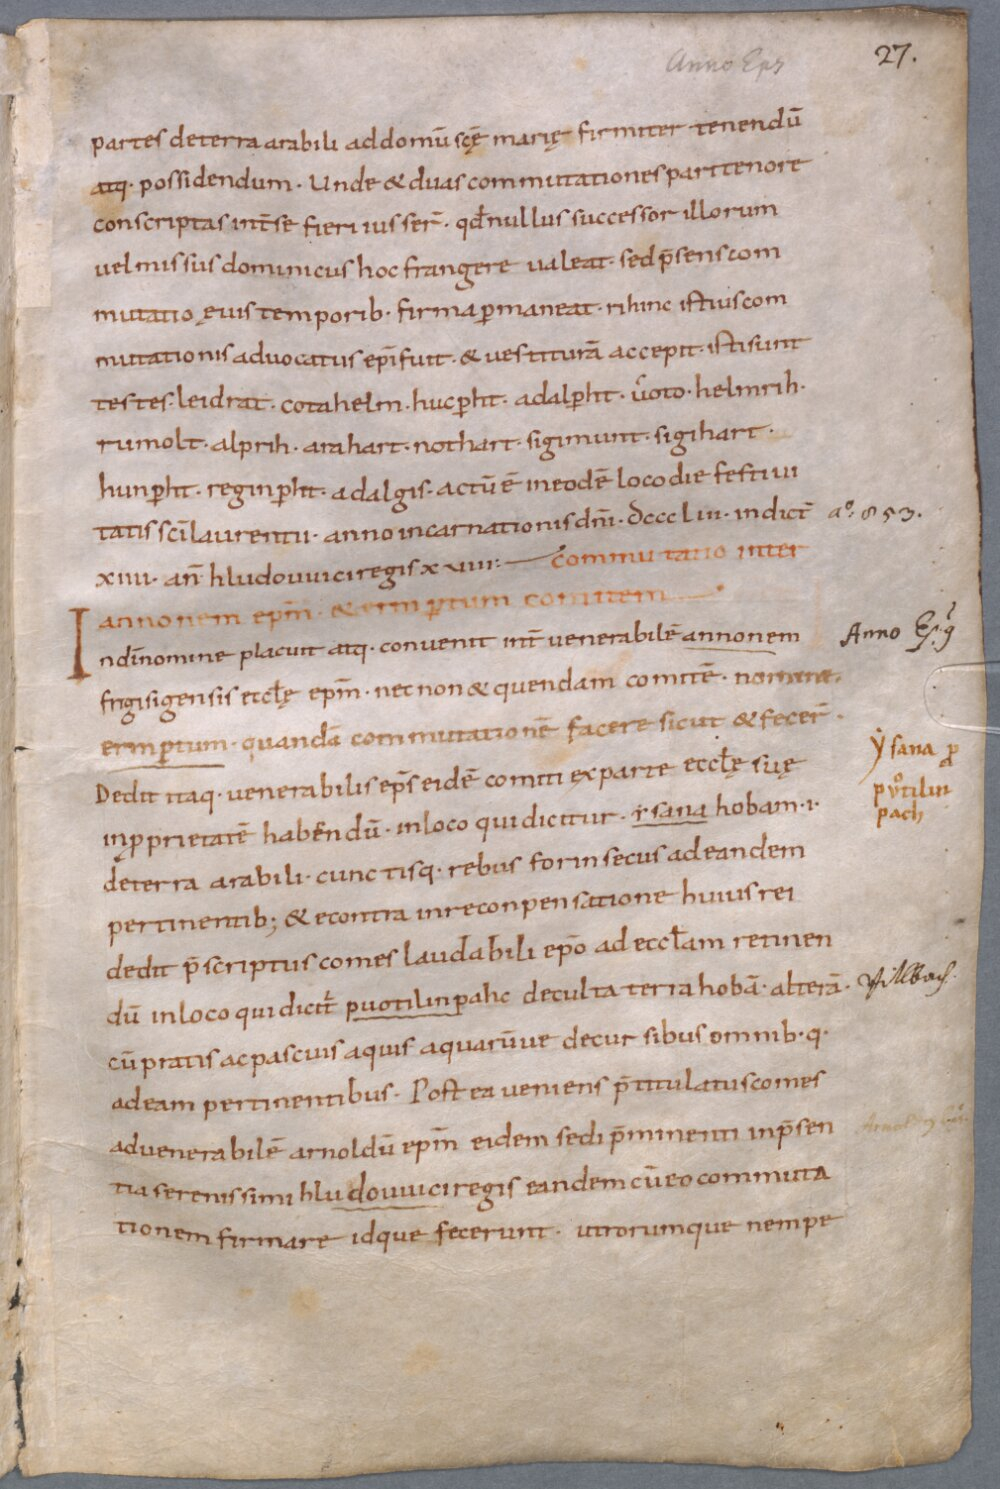 Anno Eps
27.
partes deterra arabili addomū scę̄ marię firmiter tenendū
atq· possidendum· Unde & duas commutationes pari tenore
conscriptas int̄ se fieri iusser̄· qd̄ nullus successor illorum
uel missus dominicus hoc frangere ualeat· sed p̄sens com
mutatio ęuis temporib· firma p̄maneat· rihinc istius com
mutationis aduocatus ep̄i fuit· & uestiturā accepit· isti sunt
testes· leidrat· cotahelm· hucp̄ht· adalp̄ht· u̇oto· helmrih·
rumolt· alprih· arahart· nothart· sigimunt· sigihart·
hunp̄ht· reginp̄ht· adalgis· actū ē in eodē loco die festiui
tatis sc̄i laurentii· anno incarnationis dn̄i· dccc liii· indict̄
a°. 853.
xiiii· an̄ hludouuici regis xviiii:— Commutatio inter
annonem ep̄m· & erinp̄tum comitem
In dī nomine placuit atq· conuenit int̄ uenerabilē annonem
Anno Ep̄9
frigisigensis eccłę ep̄m· nec non & quendam comitē· nomine·
erinp̄tum· quandā commutationē facere sicut & fecer̄·
Dedit itaq· uenerabilis ep̄s eidē comiti ex parte eccłę suę
ẏ sana p̄
pů̊tilin
pach
in p̄prietatē habendū· in loco qui dicitur· ẏsana hobam· i·
de terra arabili· cunctisq· rebus forinsecus ad eandem
pertinentib; & econtra in reconpensatione huius rei
dedit p̄scriptus comes laudabili ep̄o ad eccłam retinen
dū in loco qui dicit̄ puotilinpahc de culta terra hobā· alterā·
cū pratis ac pascuis aquis aquarūue decursibus omnib·q·
ad eam pertinentibus· Postea ueniens p̄titulatus comes
ad uenerabilē arnoldū ep̄m eidem sedi p̄minenti in p̄sen
tia serenissimi hludouuici regis eandem cū eo commuta
tionem firmare idque fecerunt· utrorumque nempe